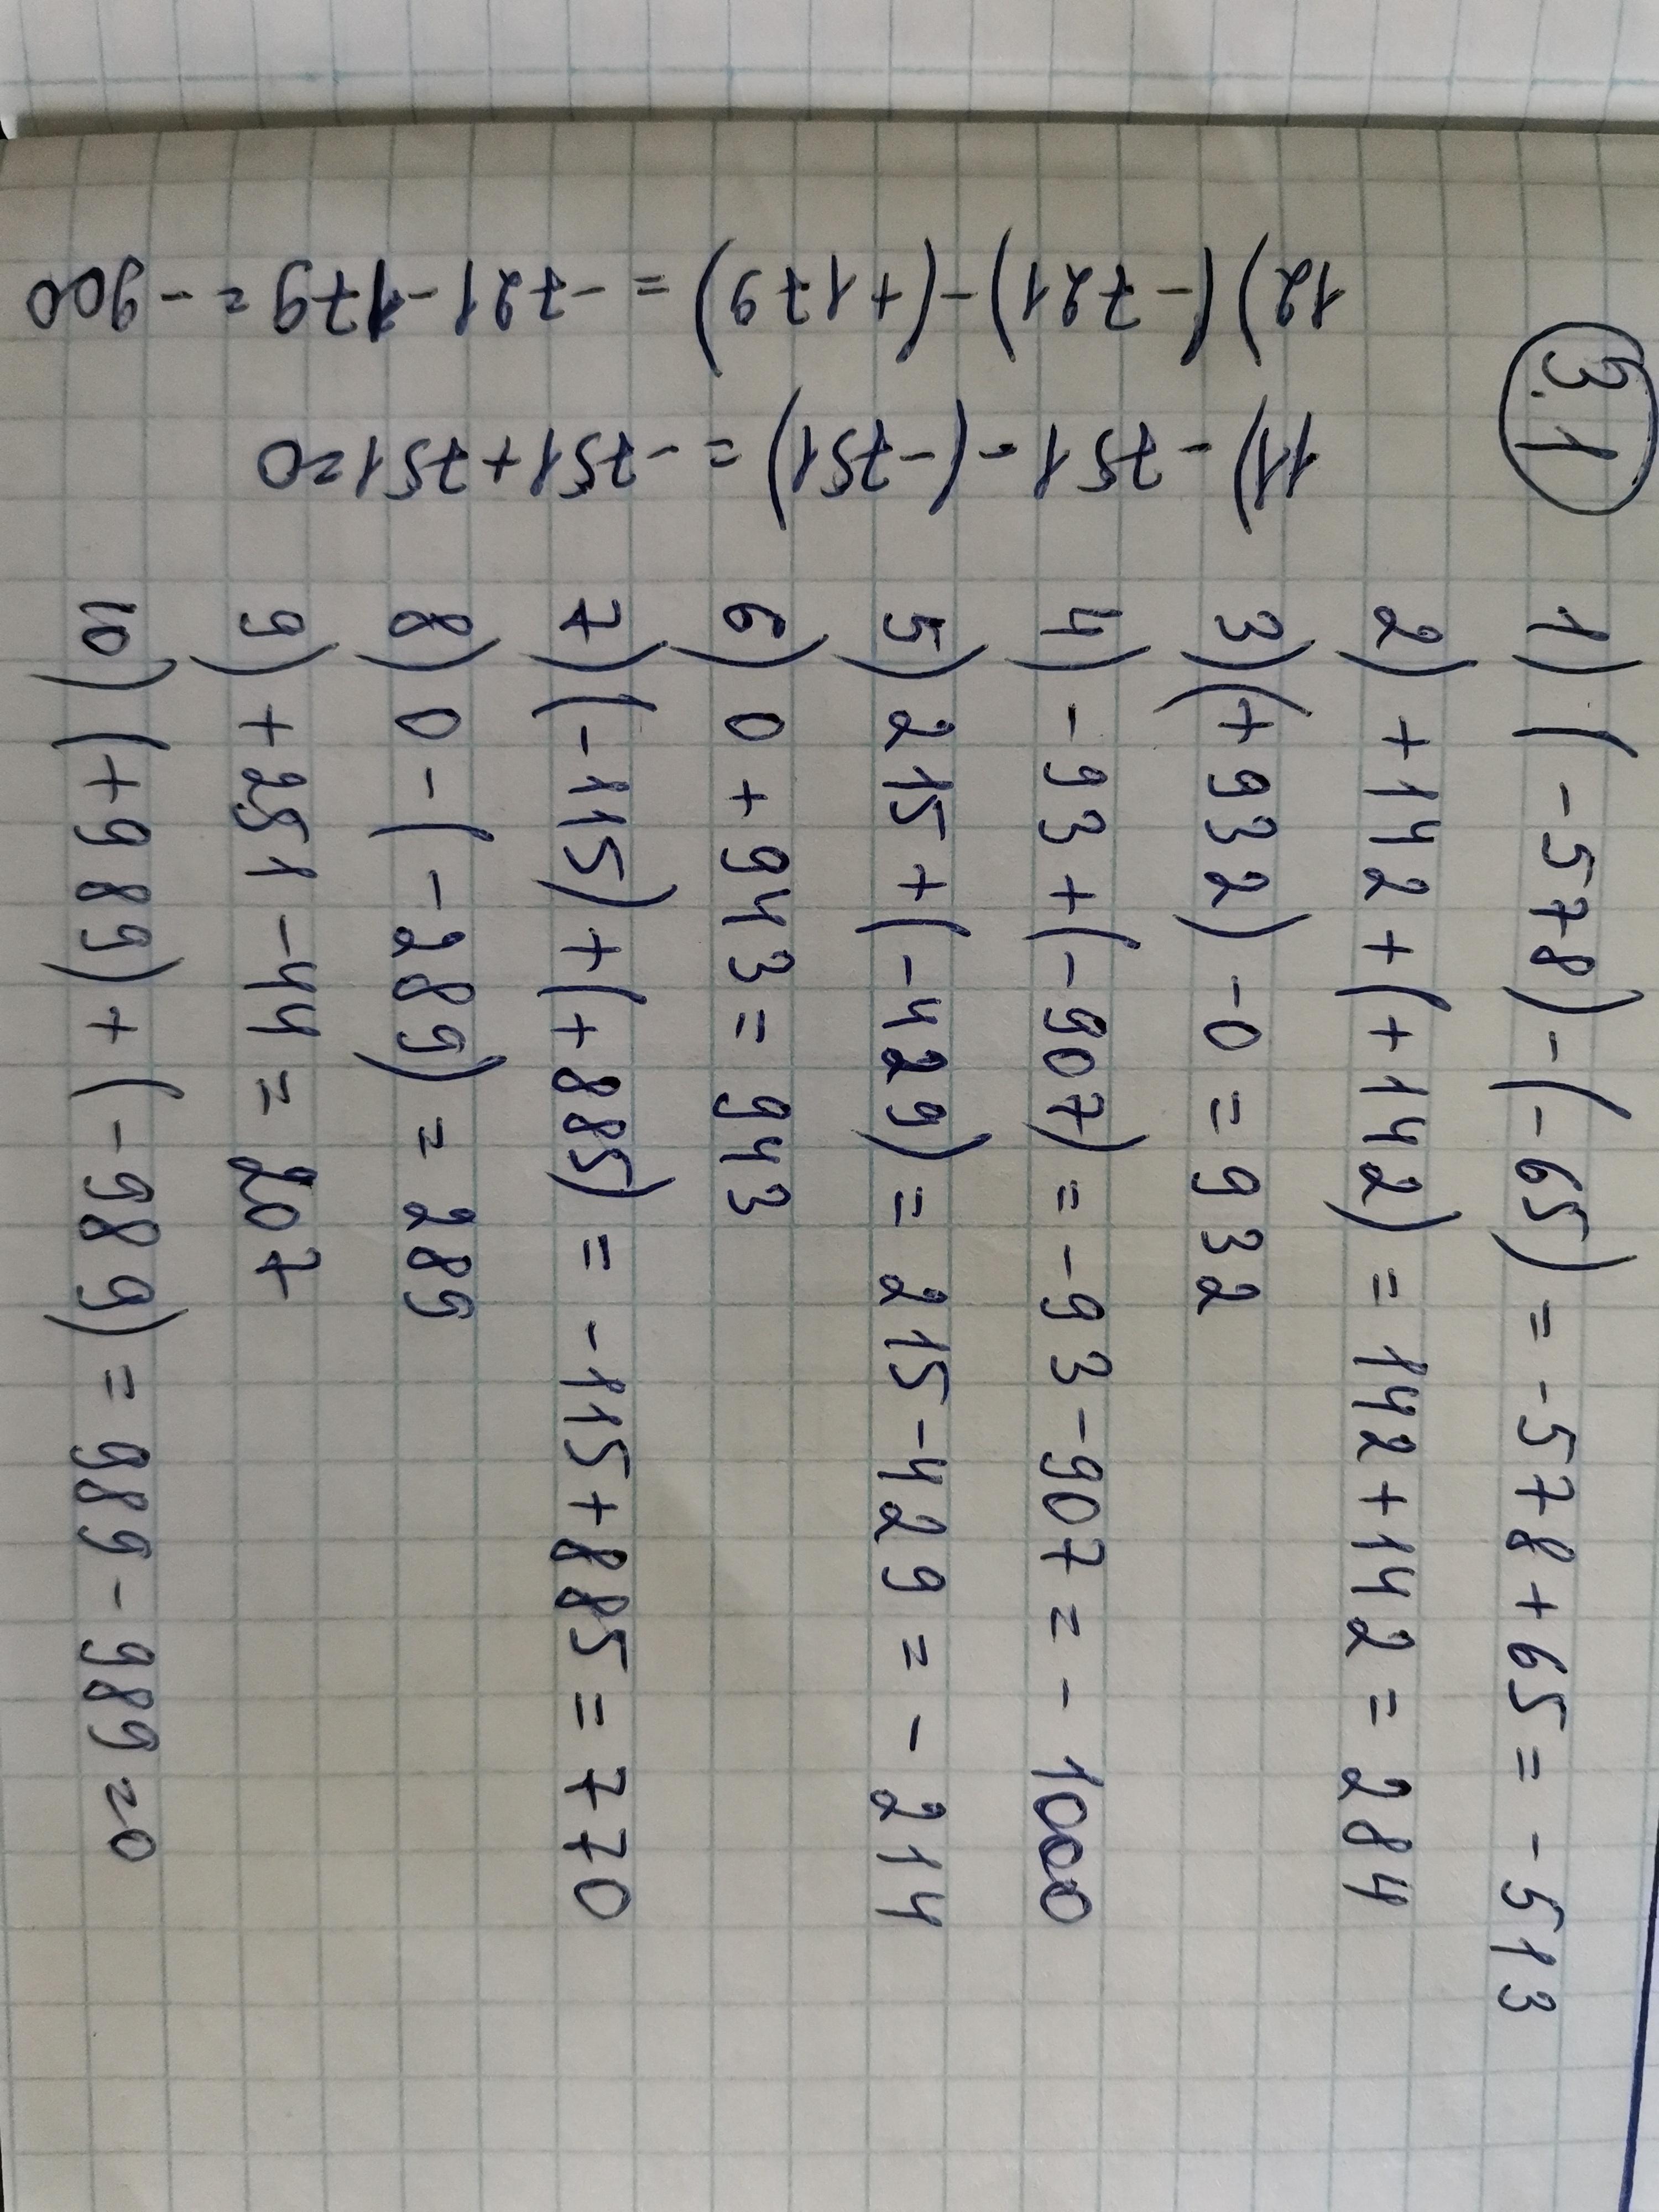 3.1
1) (-578)-(-65) = -578+65 = -513
2) +142+(+142) = 142+142 = 284
3) (+932) -0 = 932
4) -93+(-907) = -93-907 = -1000
5) 215+(-429) = 215-429 = -214
6) 0+943 = 943
7) (-115)+(+885) = -115+885 = 770
8) 0-(-289) = 289
9) +251-44 = 207
10) (+989)+(-989) = 989-989=0
11) -751-(-751) = -751+751=0
12) (-721)-(+179) = -721-179=-900